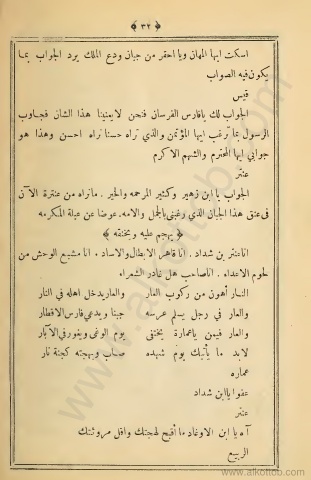 ﴿ ٣٢ ﴾
اسكت ايها المهان ويا احقر من جبان ودع الملك يرد الجواب بما
يكون فيه الصواب
قيس
الجواب لك يافارس الفرسان فنحن لايعنينا هذا الشان فجاوب
الرسول بما ترغب ايها المؤتمن والذي تراه حسنا نراه احسن وهذا هو
جوابي ايها المحترم والشهم الاكرم
عنتر
الجواب يا ابن زهير وكثير المرحمه والخير . ماتراه من عنترة الآن
في عنق هذا الجبان الذي رغبني بالجمل والامه عوضا عن عبلة المكرمه
﴿ يهجم عليه ويخنقه ﴾
اناعنتر بن شداد . انا قاهر الابطال والاساد . انا مشبع الوحش من
لحوم الاعداء . اناصاحب هل غادر الشعراء
النار أهون من ركوب العار والعار يدخل اهله في النار
والعار في رجل يسلم عرسه جبنا ويدعي فارس الاقطار
والعار فيمن ياعمارة يختفى يوم الوغى ويغور في الآبار
لابد ما يأتيك يوم شهده صاب وبهجته كجنة نار
عماره
عفوا ياابن شداد
عنتر
آه يا ابن الاوغاد ما أقبح لهجتك واقل مروئتك
الربيع
www.alkottob.com
www.alkottob.com